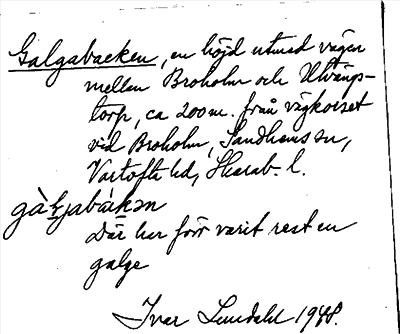 Galgabacken, en höjd utmed vägen
mellan Broholm och Ulvängs-
torp, ca 200 m. från vägkorset
vid Broholm, Sandhems sn,
Vartofta hd, Skarab. l.
gàl̥gabàkən
där har förr varit rest en
galge
Ivar Lundahl 1948.